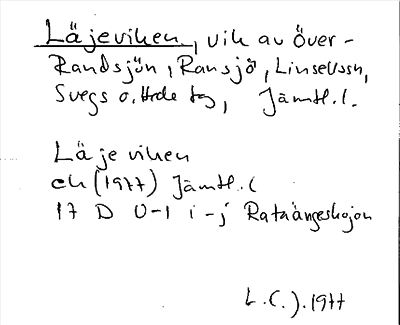 Läjeviken, vik av Över-
Randsjön, Ransjö, Linsellssn,
Svegs o. Hede tg, Jämtl. l.
Läjeviken
ek (1977) Jämtl. l
17 D 0-1 i-j Rataängeskojan
L.C.J. 1977